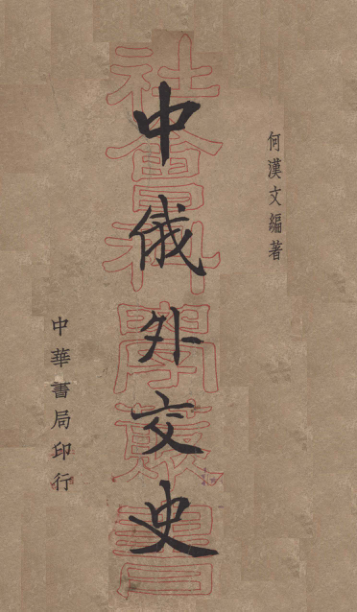 何漢文編著
中俄外交史
社會科學叢書
中華書局印行